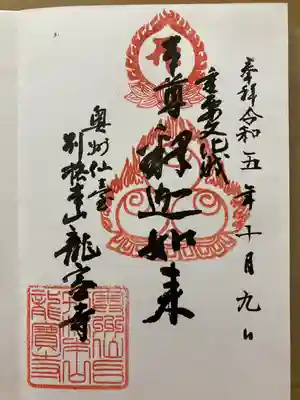 奉拝令和五年十月九日
重要文化財
本尊釈迦如来
奥州仙臺
別格本山龍宝寺
龍寶寺